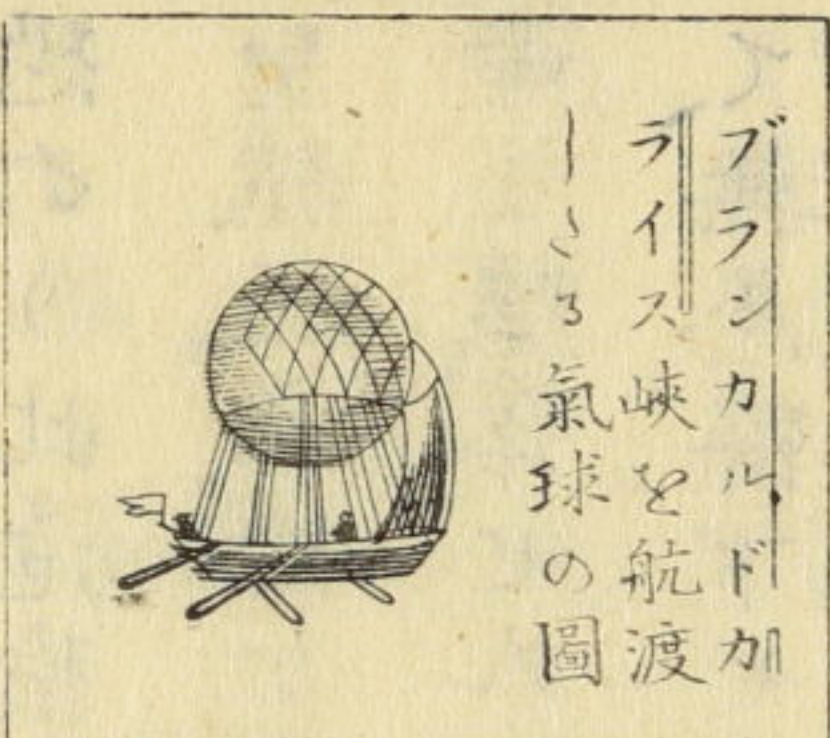 ブランカルドカ
ライス峽を航渡
しさる氣球の圖